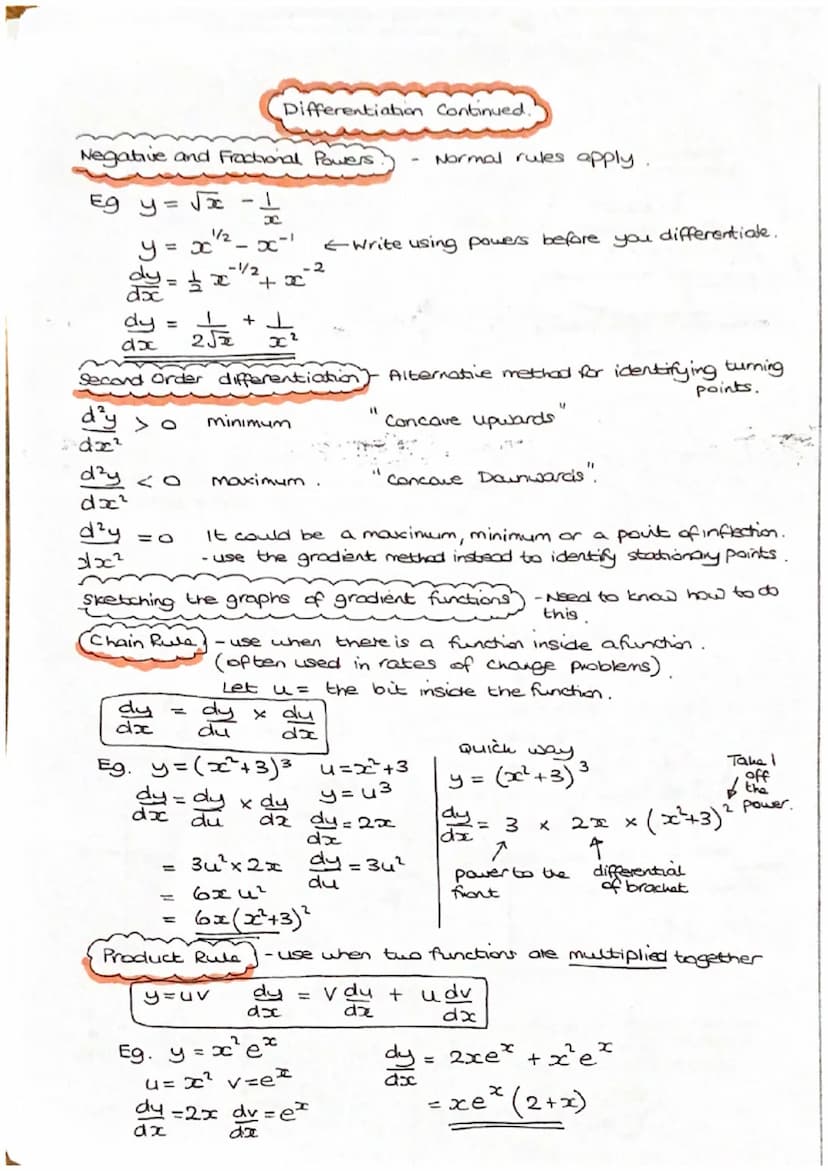 Differentiation Continued.
Negative and Fractional Powers: - Normal rules apply.
Eg y = √x - 1/x
y = x^1/2 - x^-1 ← Write using powers before you differentiate.
dy/dx = 1/2 x^-1/2 + x^-2
dy/dx = 1/2√x + 1/x²
Second Order differentiation - Alternative method for identifying turning
points.
d²y/dx² > 0 minimum "Concave upwards"
d²y/dx² < 0 maximum. "Concave Downwards".
d²y/dx² = 0 It could be a maximum, minimum or a point of inflection.
- use the gradient method instead to identify stationary points.
Sketching the graphs of gradient functions - Need to know how to do
this.
Chain Rule - use when there is a function inside a function.
(often used in rates of change problems).
Let u = the bit inside the function.
dy/dx = dy/du × du/dx
Eg. y = (x²+3)³ u = x²+3
y = u³
dy/dx = dy/du × du/dx du/dx = 2x
= 3u² × 2x dy/du = 3u²
= 6x u²
= 6x(x²+3)²
Quick way
y = (x²+3)³
Take 1
off
the
power.
dy/dx = 3 × 2x × (x²+3)²
power to the
front
differential
of bracket
Product Rule - use when two functions are multiplied together
y=uv dy/dx = v du/dx + u dv/dx
Eg. y = x²e^x
u = x² v = e^x
du/dx = 2x dv/dx = e^x
dy/dx = 2xe^x + x²e^x
= xe^x (2+x)